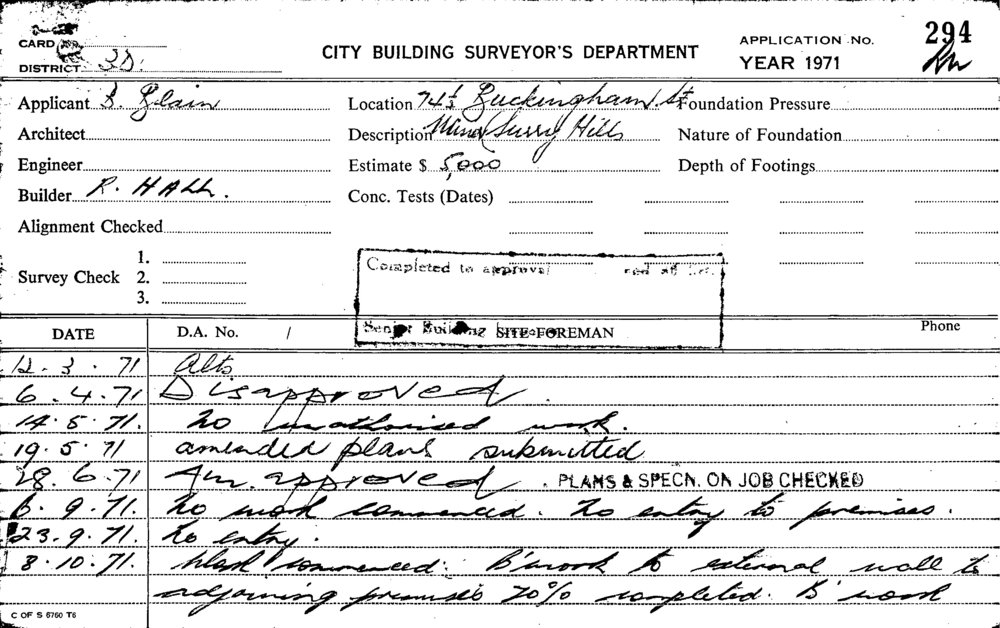 CARD
DISTRICT 3D.
CITY BUILDING SURVEYOR'S DEPARTMENT
APPLICATION No. 294
YEAR 1971
Applicant S. Blain
Location 74½ Buckingham St
Foundation Pressure
Architect
Description Surry Hills
Nature of Foundation
Engineer
Estimate $ 5,000
Depth of Footings
Builder R. HALL.
Conc. Tests (Dates)
Alignment Checked
Survey Check 1.
2.
3.
Completed to approval
Senior Building
DATE D.A. No. / SITE FOREMAN Phone
12.3.71 Alts
6.4.71 Disapproved.
14.5.71. No unauthorised work.
19.5.71 amended plans submitted
28.6.71 Am. approved. PLANS & SPECN. ON JOB CHECKED
6.9.71. No work commenced. No entry to premises.
23.9.71. No entry.
8.10.71. Work commenced. B'work to external wall to
adjoining premises 70% completed. B'work
C OF S 6760 T6